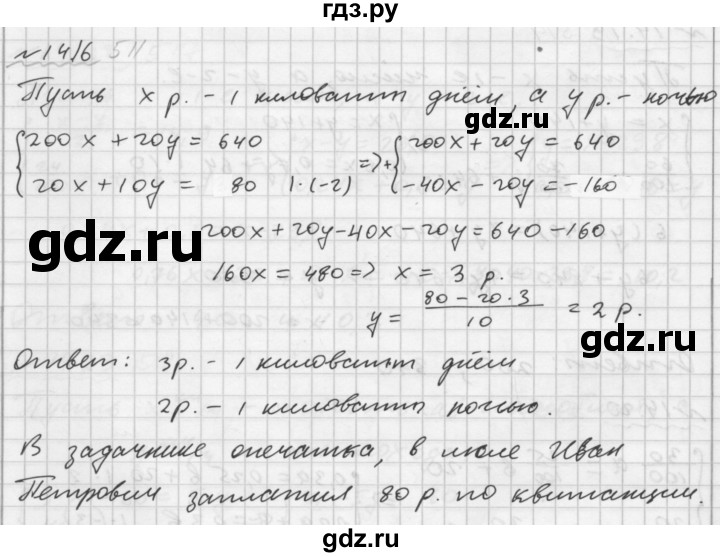 гдз.ру
№1416
Пусть x р. – 1 киловатт днём, а y р. – ночью
{200x + 20y = 640 => + {200x + 20y = 640
{20x + 10y = 80 |·(-2) {-40x - 20y = -160
200x + 20y - 40x - 20y = 640 - 160
160x = 480 => x = 3 р.
y = (80 - 20·3)/10 = 2 р.
Ответ: 3р. – 1 киловатт днём
2р. – 1 киловатт ночью.
В задачнике опечатка, в июле Иван
Петрович заплатил 80 р. по квитанции.
gdz.ru
gdz.ru
gdz.ru